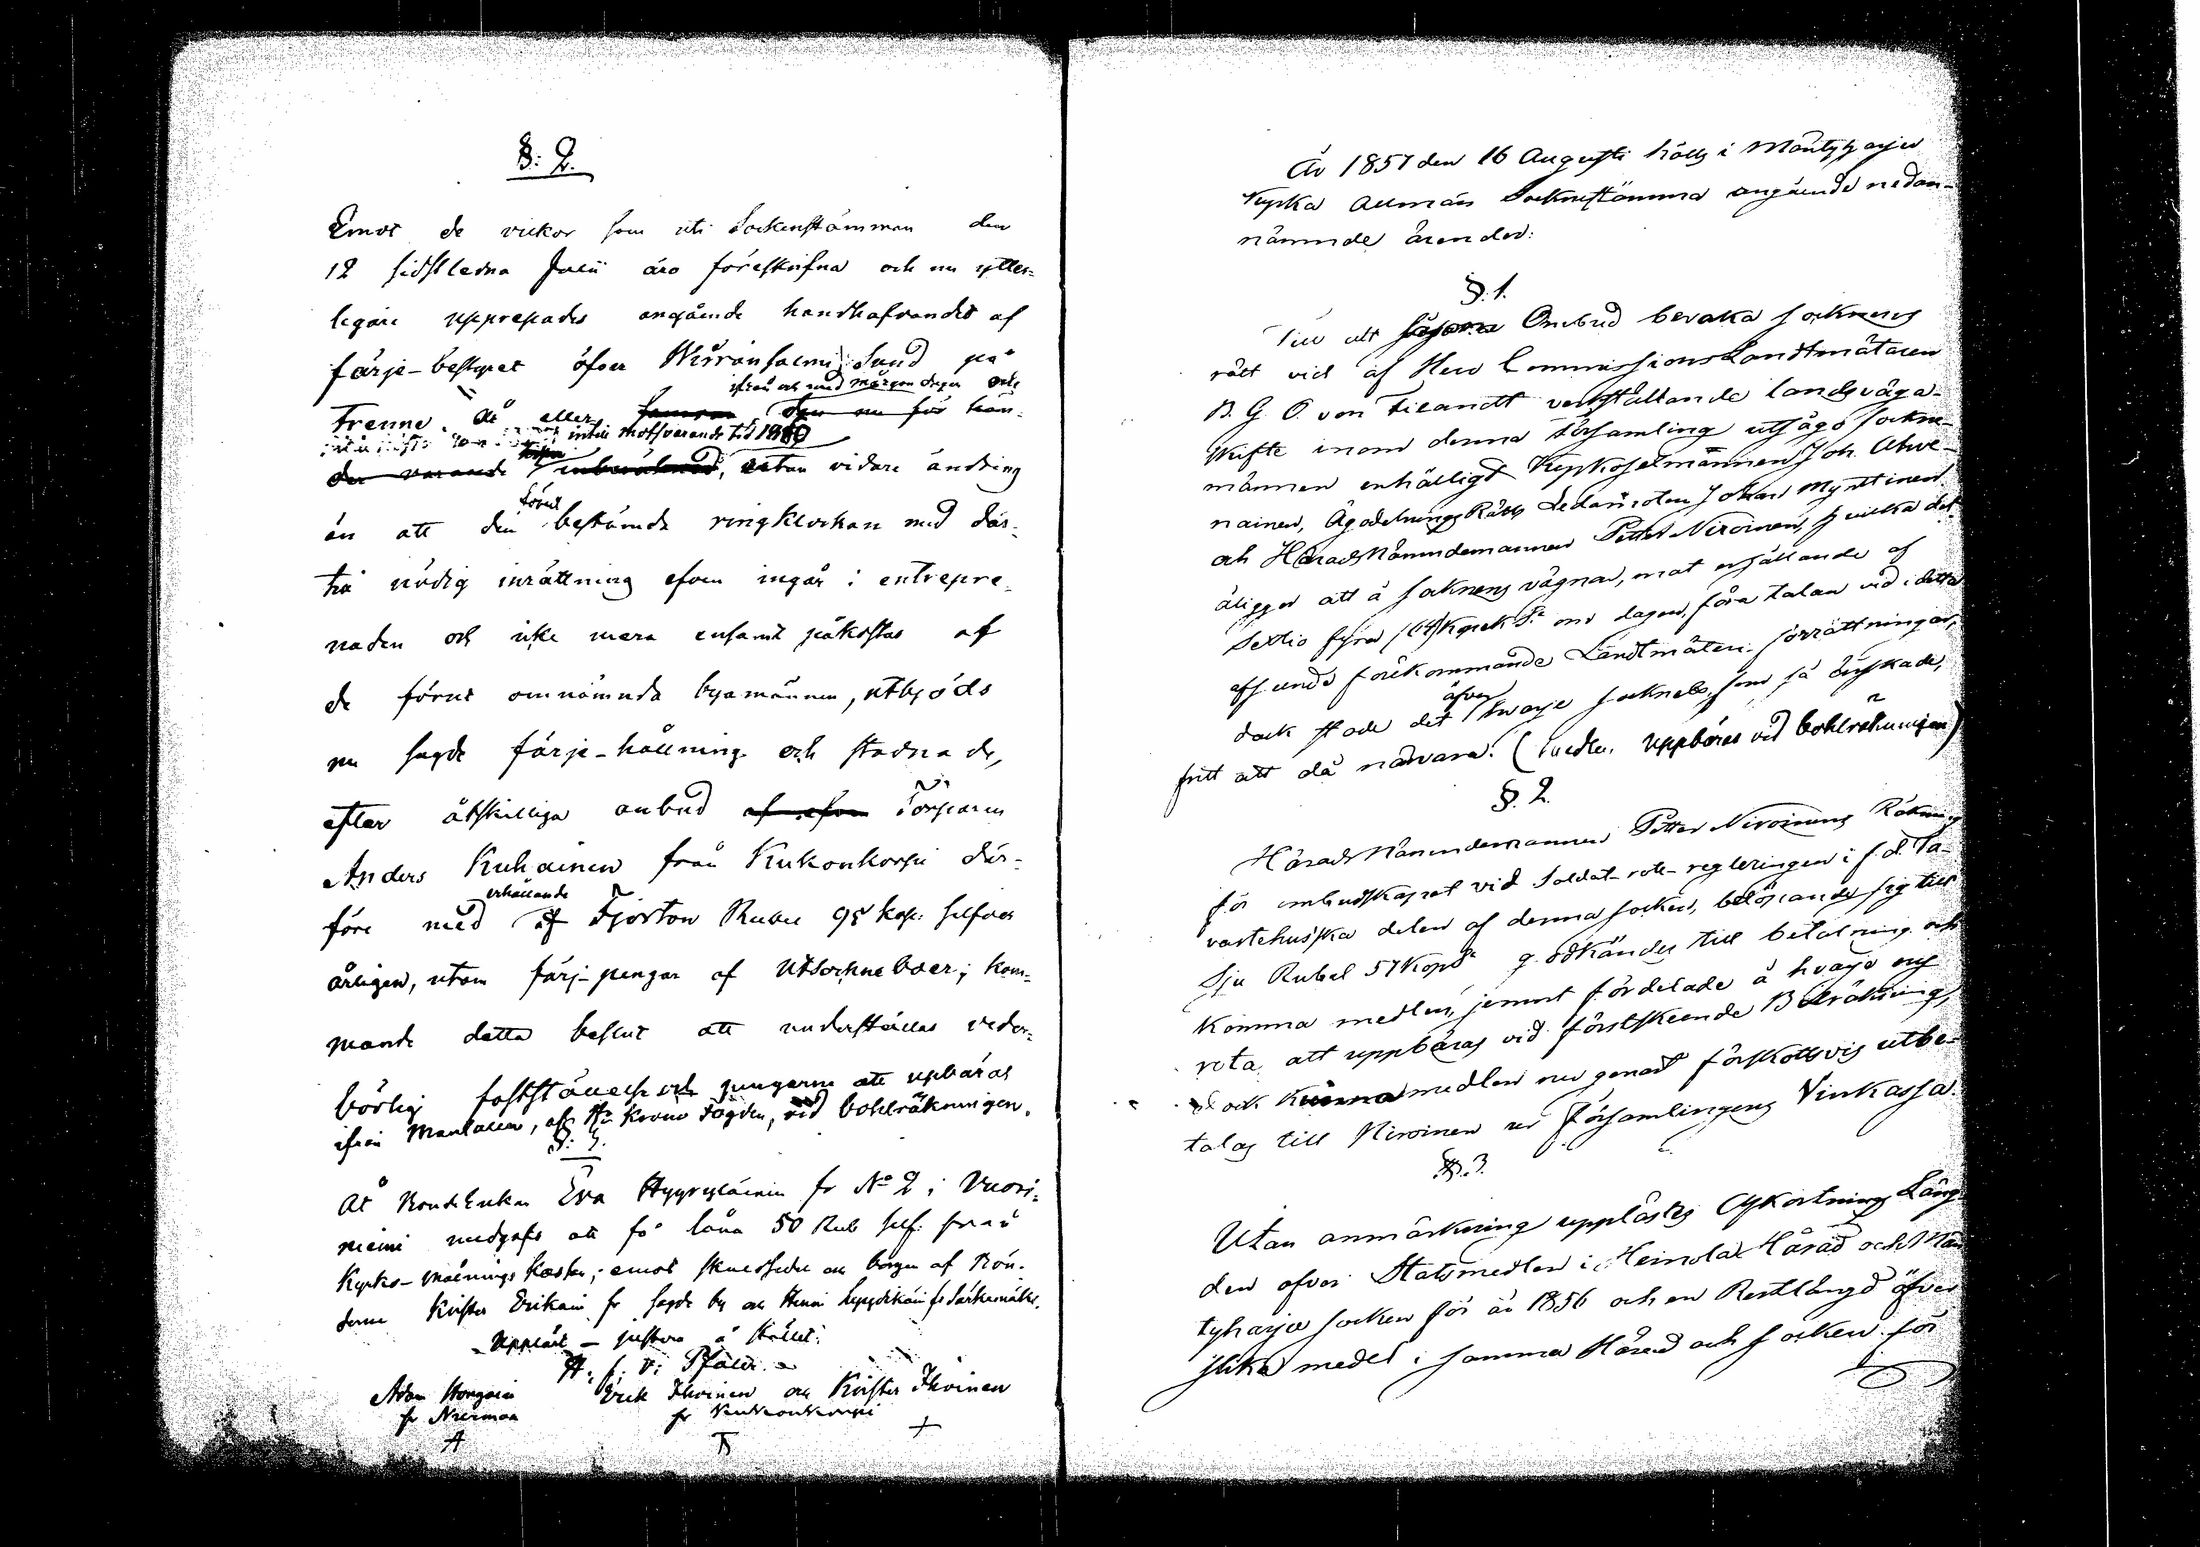 §: 2.
Emot de vilkor som uti Sockenstämman den
12 sidstledna Julii äro föreskrifna och nu ytter-
ligare upprepades angående handhafvandet af
färje-bestyret öfver Wirransalmi Sund på
ifrån och med morgondagen och
Trenne år eller
intill motsvarande tid 1860
utan vidare ändring
än att den förut bestämda ringklockan med där-
till nödig inrättning äfven ingår i entrepre-
naden och icke mera ensamt påkostas af
de förut omnämnda byamännen, utbjöds
nu sagde färje-hållning och stadnade,
efter åtskilliga anbud Torparen
Anders Kuhainen från Kukonkorpi där-
före med erhållande af Fjorton Rubel 95 kop: silfver
årligen, utom färj-pengar af Utsockneboer; kom-
mande detta beslut att underställas veder-
börlig fastställelse och pengarne att upbäras
ifrån Mantalen, af Hr Krono Fogden, vid bohlräkningen.
§: 3.
At BondEnkan Eva Hyyryläinen fr No 2 i Vuori-
niemi medgafs att få låna 50 Rub silf: från
Kyrko-Målnings Kassan; emot skuldsedel och borgen af Bön-
derne Krister Erikain fr sagde by och Henri Lyyidikäin fr Särkemäki.
Uppläst - justera å stället:
A: f: v: Pfaler.
Adam Hongain Erik Ihvinen och Krister Ihvinen
fr Nurmaa fr Kukonkorpi
År 1857 den 16 Augusti hölls i Mäntyharju
Kyrka Allmän Socknestämma angående nedan-
nämnde ärender:
§. 1.
Till att såsom Ombud bevaka socknens
rätt vid af Herr CommissionsLandtmätaren
B. G. O. von Fieandt verkställande landsväga-
skifte inom denna Församling utsågo sockne-
männen enhälligt Kyrkoselmännen Joh. Ahve-
nainen, ÄgodelningsRätts Ledamoten Johan Mynttinen
och HäradsNämndemannen Petter Niroinen, hvilka det
åligger att å socknens vägnar, mot erhållande af
Sextio fyra (64) Kopek Sr om dagen, föra talan vid i detta
afseende förekommande Landtmäteri-förrättningar,
dock stode det äfven hvarje sockneboe, som så önskade,
fritt att då närvara. (medlen uppbäras vid bohlräkningen)
§. 2.
HäradsNämndemannen Petter Niroinens Räkning
för ombudskapet vid Soldat-rote-regleringen i f.d. Ta-
vastehusska delen af denna socken, belöpande sig till
Sju Rubel 57 Kop Sr godkändes till betalning och
komma medlen, jemnt fördelade å hvarje ny
rota, att uppbäras vid förstskeende Bolräkning,
dock kunna medlen nu genast förskottsvis utbe-
talas till Niroinen ur Församlingens Vinkassa.
§. 3.
Utan anmärkning upplästes Afkortnings Läng-
den öfver Statsmedlen i Heinola Härad och Män
tyharju socken för år 1856 och en Restlängd öfver
slika medel i samma Härad och socken för